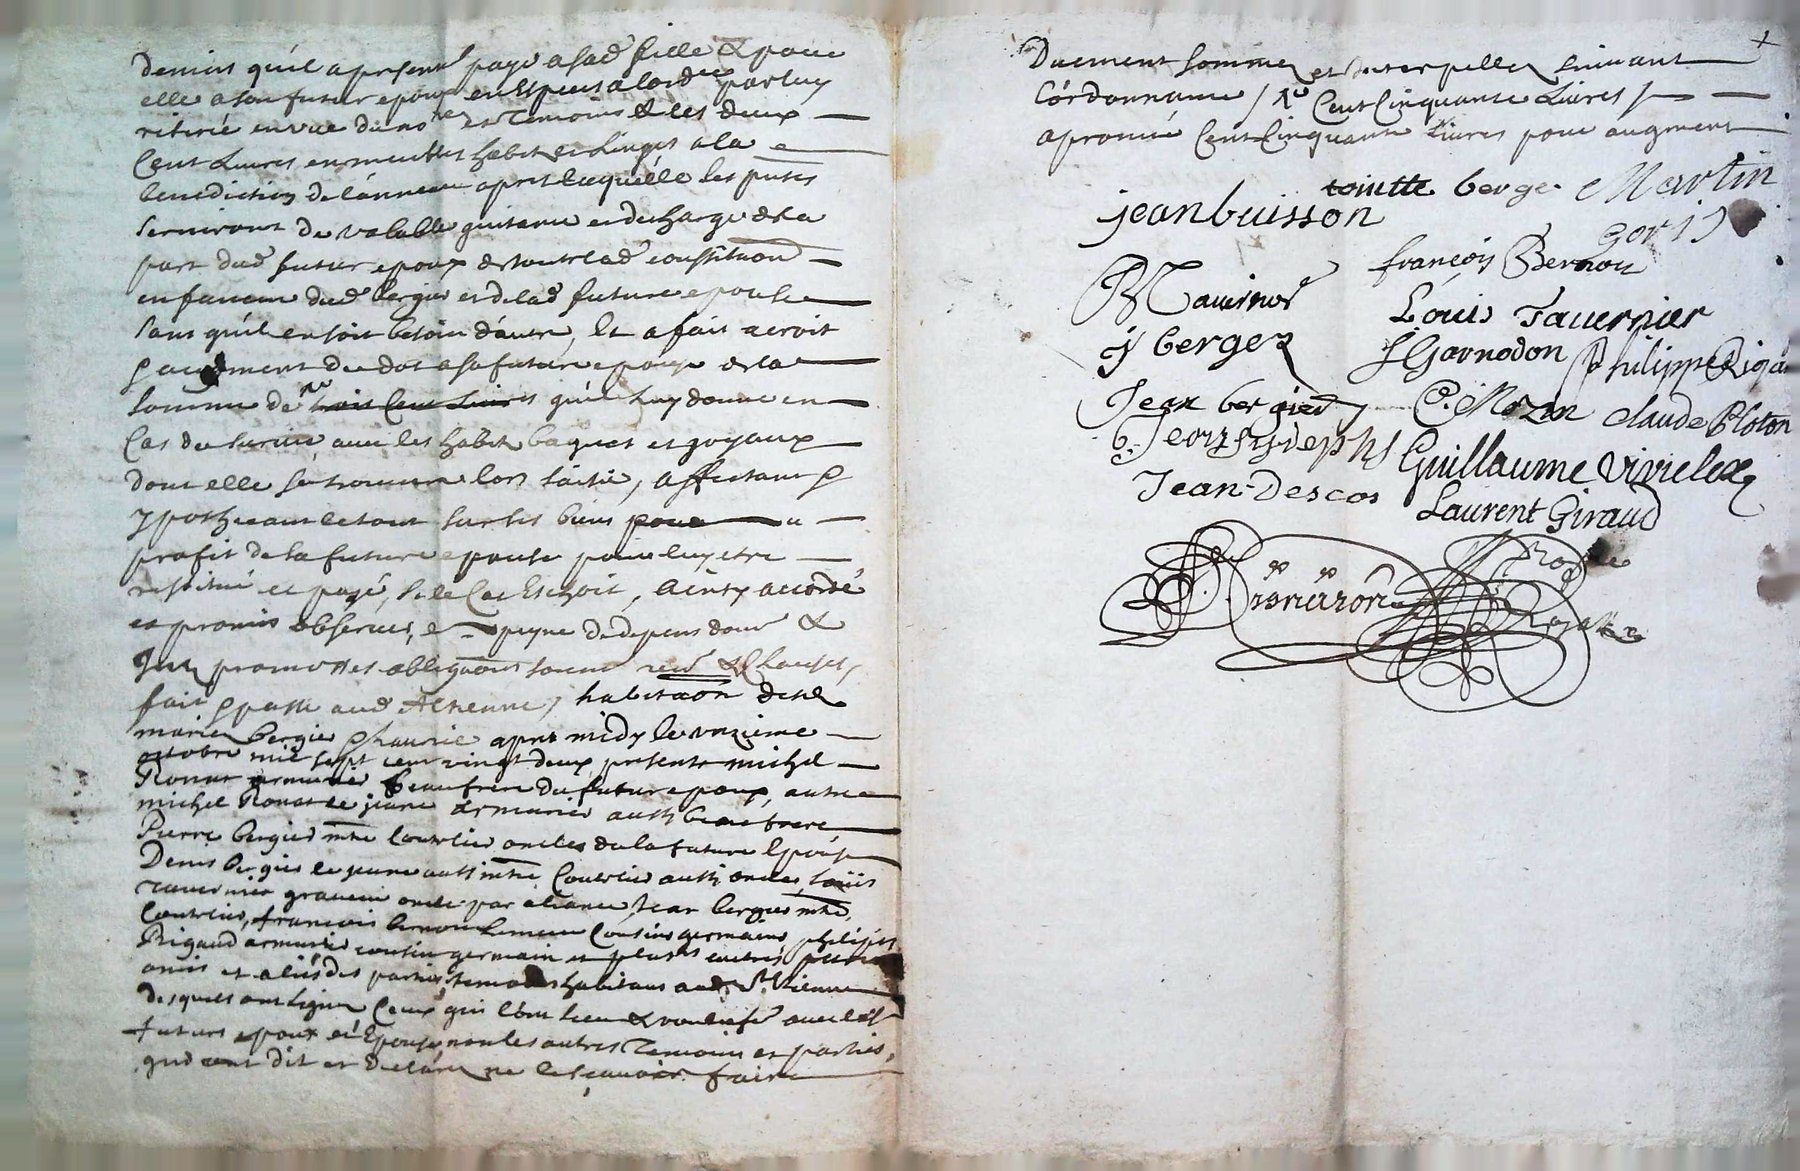 deniers qu'il a presenté payé a sad fille & pour
elle a son futur epoux en Especes a lord par luy
retiré en vue du no.re et Temoins & les deux
Cent Livres en meubles habit et Linges a la
benediction de l'anneau apres laquelle les pntes
serviront de valable quitance et decharge de la
part dud futur epoux de toute lad constituon
en faveur dud bergier et de lad future epouse
sans qu'il en soit besoin d'autre, Et a fait acroit
& augment de dot a sa future epouse de la
somme de trois Cent Livres qu'il luy donne en
Cas de survie avec les habits bagues et joyaux
dont elle se trouvera lors saisie, affectant &
ypothecant le tout sur ses biens pour au
profit de la future epouse pour luy etre
restitué et payé, si le Cas Eschoit, ainsy accordé
et promis observer, a peyne de depens dom &
par promesses obligaons soum renon & Clauses,
fait & passé aud St Etienne, habitaon de sr
marie bergier & hauriie apres midy le unzieme
octobre mil sept cent vingt deux presents michel
Ronat armurier beau frere du futur epoux, autre
michel Ronat le jeune armurier aussi beau frere
Pierre bergier mtre Coutelier oncles de la future Epouse
Denis bergier le jeune aussi mtre Coutelier aussi oncle, Louis
tavernier graveur oncle par aliance, Jean bergier mtre
Coutelier, francois bernou Cousins germains, philippe
Rigaud armurier cousin germain et plusrs autres parens
amis et aliés des parties, temoins habitans aud St Etienne
desquels ont signé Ceux qui l'ont sceu & voulu avec les
futurs epoux et Epouse, non les autres Temoins et parties,
qui ont dit et declaré ne le sçavoir faire
Duement sommes et Interpelles suivant
l'ordonnance / Cent Cinquante Livres /
a promié Cent Cinquante livres pour augment
toinette berge Martin
jean buisson
françois Bernou
Tavernier
Louis Tavernier
berger
J Garnodon Philippe Rigau
Jean bergier C. Mozin Claude Ploton
Guillaume Viviel
Jean Descos
Laurent Giraud